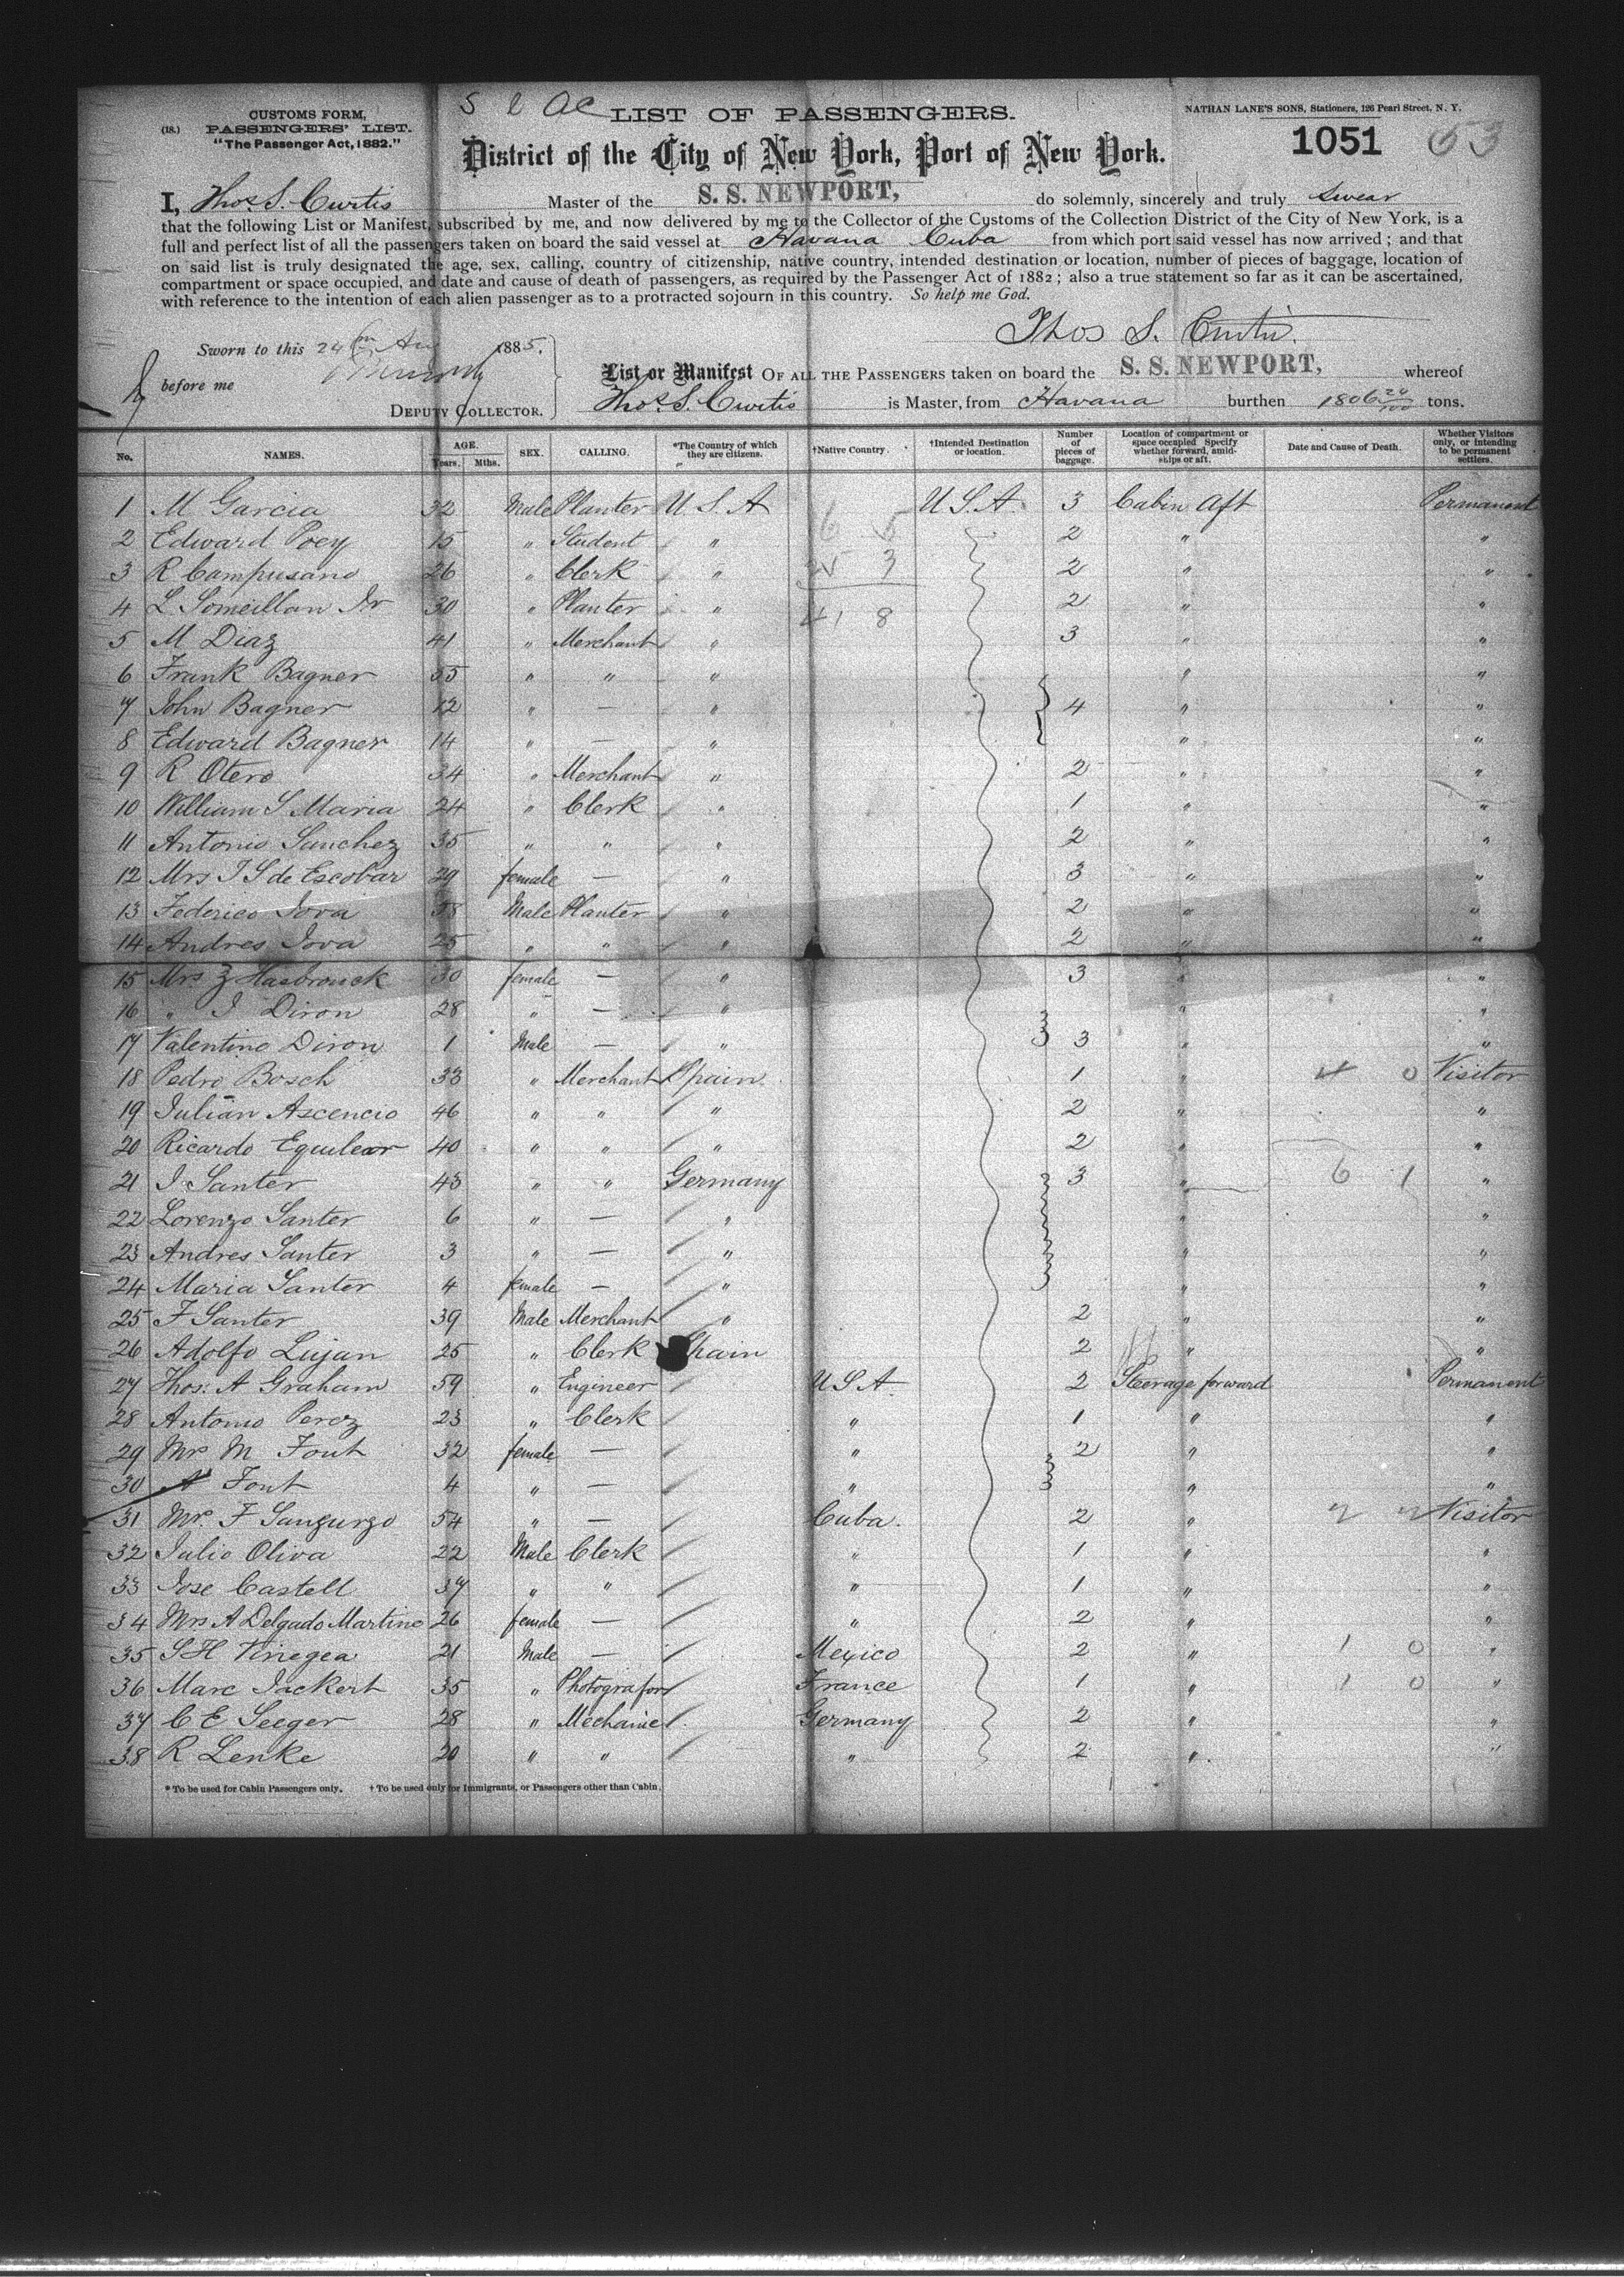 CUSTOMS FORM,
(18.) PASSENGERS' LIST.
"The Passenger Act, 1882."
LIST OF PASSENGERS.
NATHAN LANE'S SONS, Stationers, 126 Pearl Street, N. Y.
1051 63
District of the City of New York, Port of New York.
I, Thos. S. Curtis Master of the S. S. NEWPORT, do solemnly, sincerely and truly swear
that the following List or Manifest, subscribed by me, and now delivered by me to the Collector of the Customs of the Collection District of the City of New York, is a
full and perfect list of all the passengers taken on board the said vessel at Havana Cuba from which port said vessel has now arrived ; and that
on said list is truly designated the age, sex, calling, country of citizenship, native country, intended destination or location, number of pieces of baggage, location of
compartment or space occupied, and date and cause of death of passengers, as required by the Passenger Act of 1882 ; also a true statement so far as it can be ascertained,
with reference to the intention of each alien passenger as to a protracted sojourn in this country. So help me God.
Thos S. Curtis.
Sworn to this 24 Aug 1885.
before me
DEPUTY COLLECTOR.
List or Manifest OF ALL THE PASSENGERS taken on board the S. S. NEWPORT, whereof
Thos. S. Curtis is Master, from Havana burthen 1806 24/100 tons.
No. NAMES. AGE. Years. Mths. SEX. CALLING. *The Country of which they are citizens. †Native Country. †Intended Destination or location. Number of pieces of baggage. Location of compartment or space occupied Specify whether forward, amidships or aft. Date and Cause of Death. Whether Visitors only, or intending to be permanent settlers.
1 M Garcia 32 Male Planter U. S. A U. S. A. 3 Cabin Aft Permanent
2 Edward Poey 15 " Student " 2 " "
3 R Campusano 26 " Clerk " 2 " "
4 L Someillan Jr 30 " Planter " 2 " "
5 M Diaz 41 " Merchant " 3 " "
6 Frank Bagner 35 " " " " "
7 John Bagner 12 " — " 4 " "
8 Edward Bagner 14 " — " " "
9 R Otero 34 " Merchant " 2 " "
10 William S Maria 24 " Clerk " 1 " "
11 Antonio Sanchez 35 " " " 2 " "
12 Mrs I S de Escobar 29 female — " 3 " "
13 Federico Iova 38 Male Planter " 2 " "
14 Andres Iova 25 " " " 2 " "
15 Mrs Z Hasbrouck 30 female — " 3 " "
16 " I Diron 28 " — " " "
17 Valentino Diron 1 Male — " 3 " "
18 Pedro Bosch 33 " Merchant Spain. 1 " 4 0 Visitor
19 Julian Ascencio 46 " " " 2 " "
20 Ricardo Equilear 40 " " " 2 " "
21 I Santer 43 " " Germany 3 " 6 1 "
22 Lorenzo Santer 6 " — " " "
23 Andres Santer 3 " — " " "
24 Maria Santer 4 female — " " "
25 F Santer 39 Male Merchant " 2 " "
26 Adolfo Lujan 25 " Clerk Spain 2 " "
27 Thos. A Graham 59 " Engineer U S A. 2 Steerage forward Permanent
28 Antonio Perez 23 " Clerk " 1 " "
29 Mrs M Font 32 female — " 2 " "
30 A Font 4 " — " " "
31 Mrs. F Sangurgo 54 " — Cuba. 2 " Visitor
32 Julio Oliva 22 Male Clerk " 1 " "
33 Jose Castell 37 " " " 1 " "
34 Mrs A Delgado Martino 26 female — " 2 " "
35 S H Vinegea 21 Male — Mexico 2 " 1 0 "
36 Marc Jackert 35 " Photografor France 1 " 1 0 "
37 C E Seeger 28 " Mechanic Germany 2 " "
38 R Lenke 20 " " " 2 " "
* To be used for Cabin Passengers only. † To be used only for Immigrants, or Passengers other than Cabin.